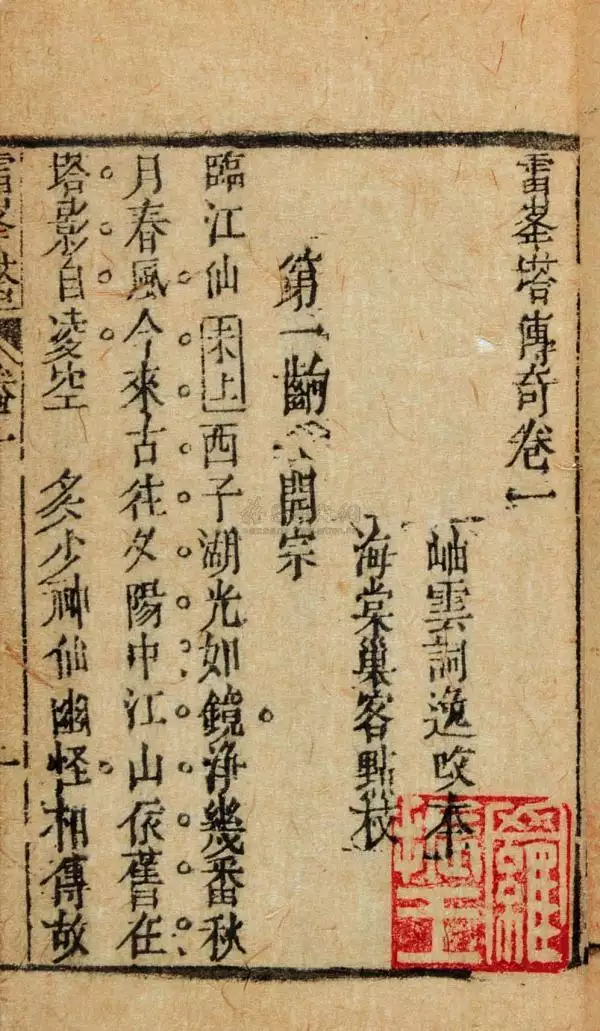 雷峯塔傳奇卷一
岫雲詞逸改本
海棠巢客點校
第一齣 開宗
臨江仙末上西子湖光如鏡淨幾番秋
月春風今來古往夕陽中江山依舊在
塔影自凌空 多少神仙幽怪相傳故
雷峯塔 卷一